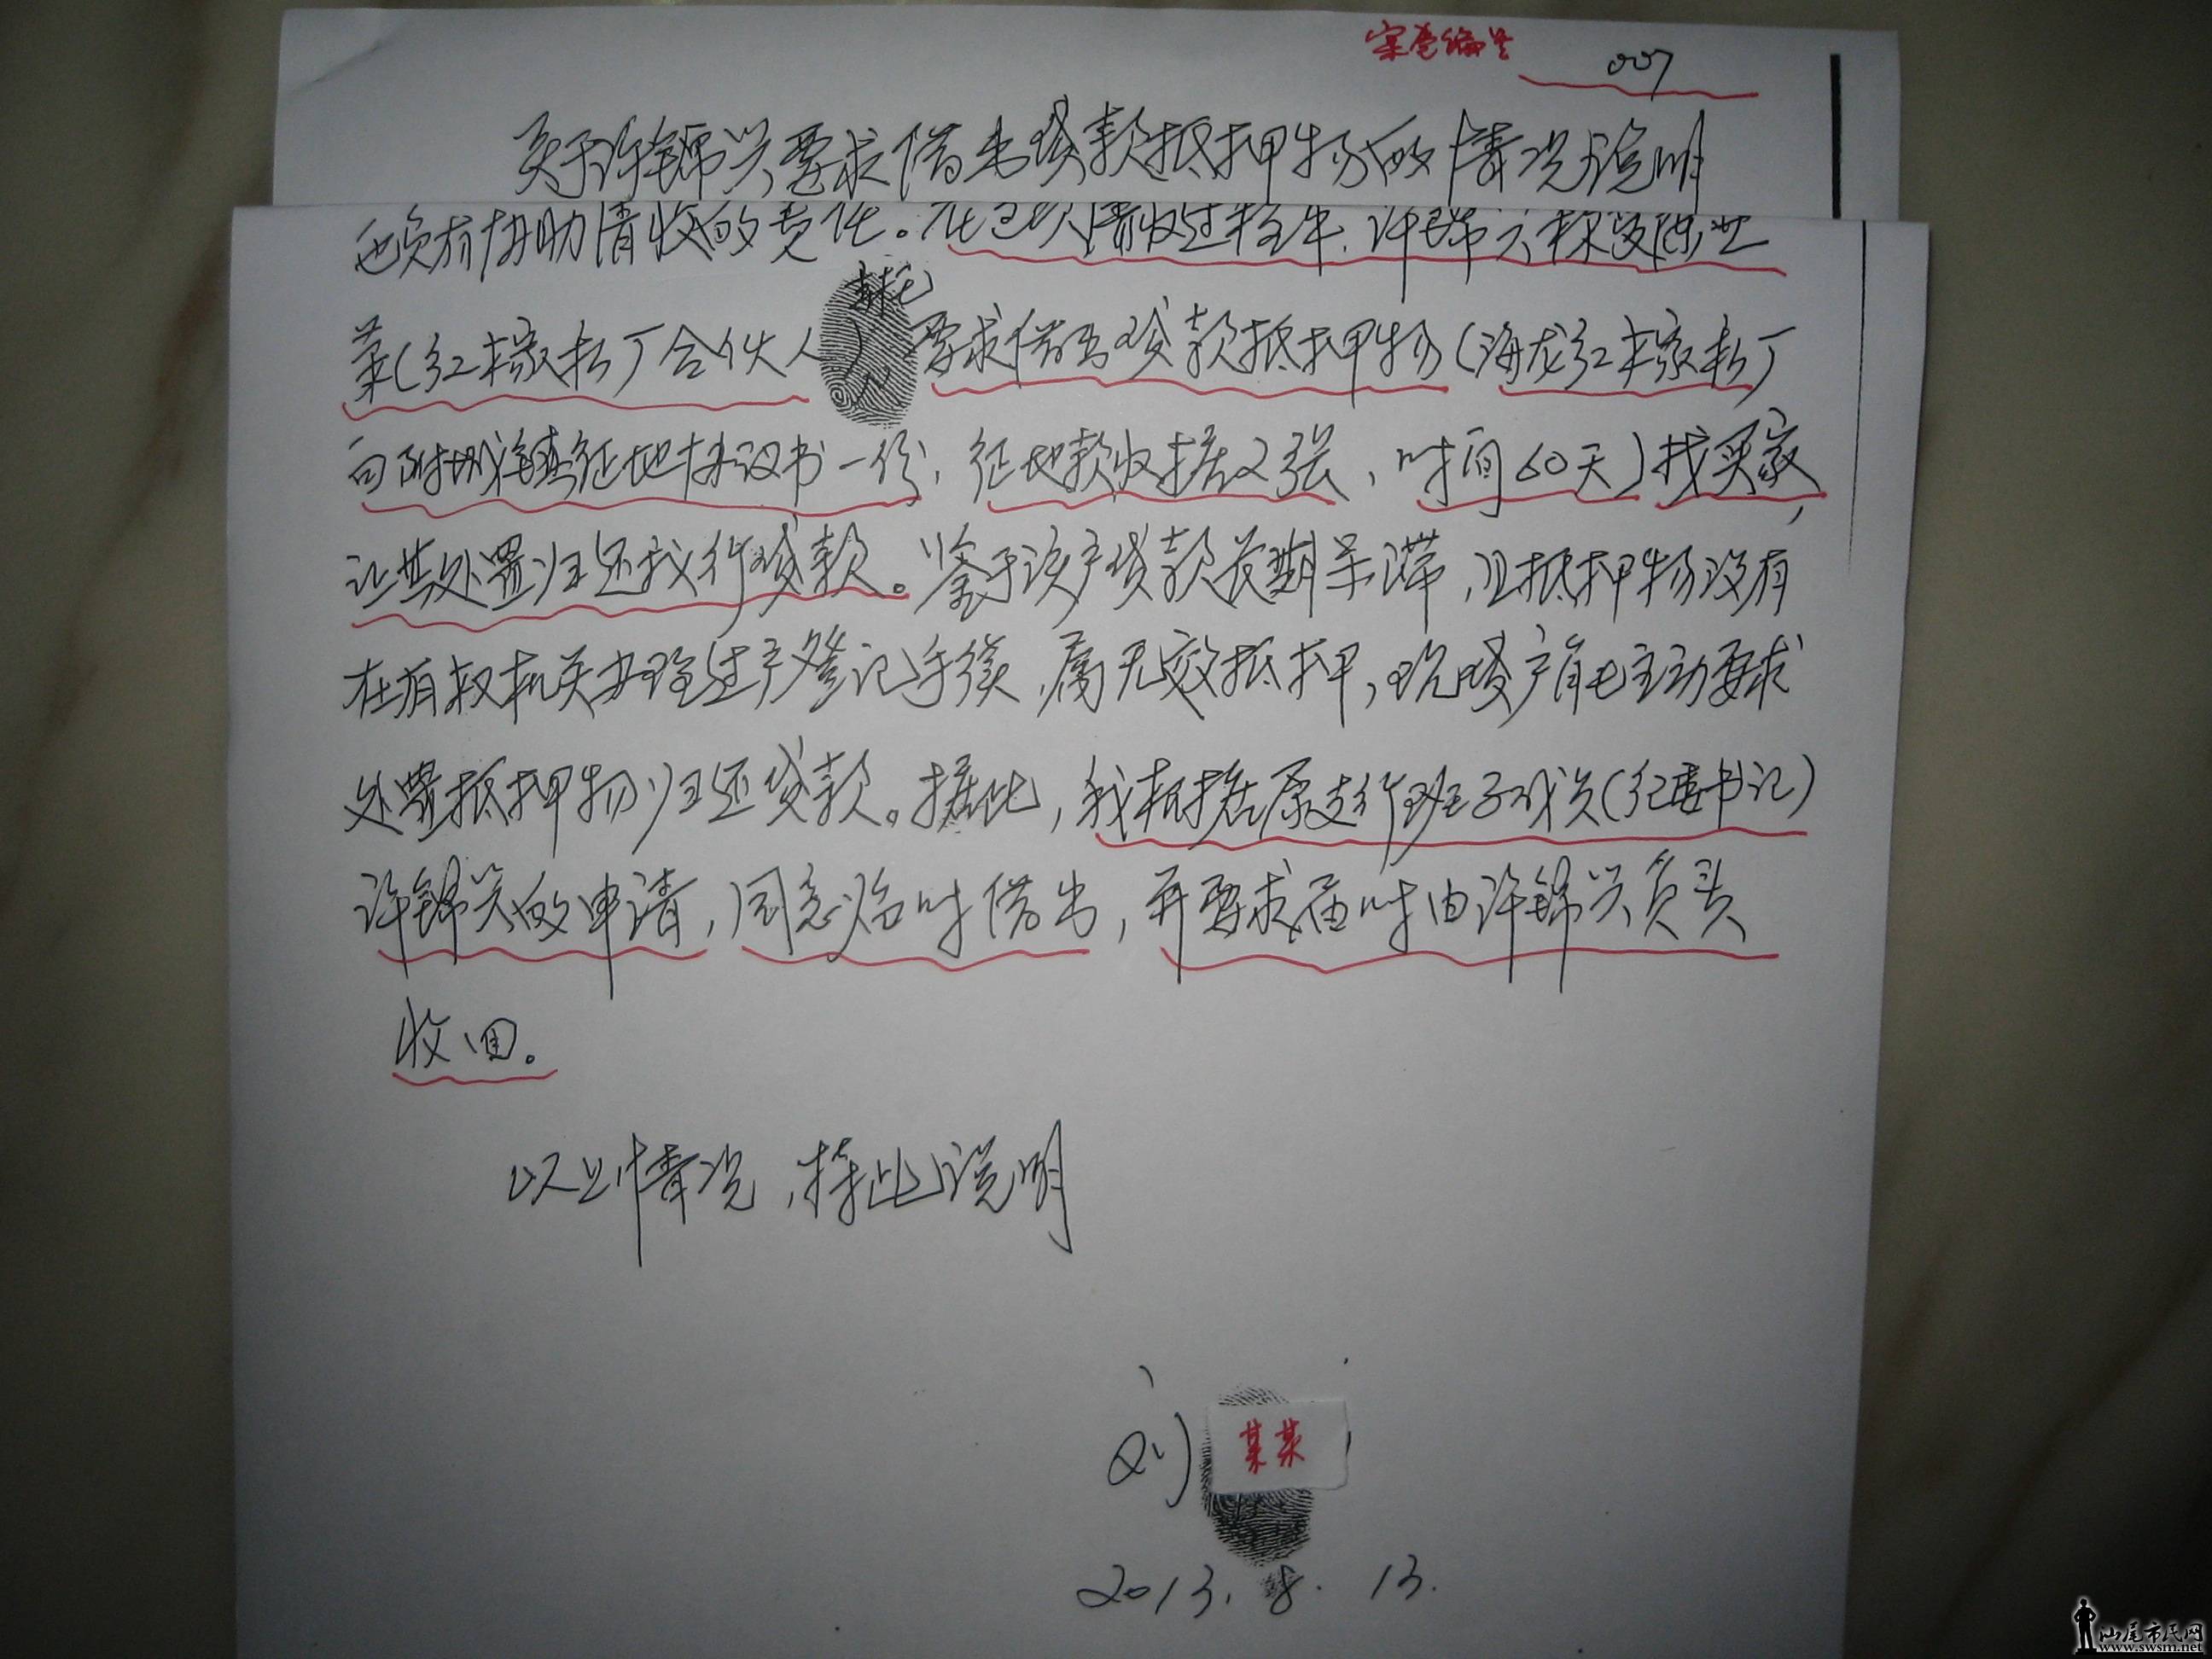 案卷编号 007
关于许锦兴要求借出贷款抵押物的情况说明
也负有协助清收的责任。在这次清收过程中,许锦兴
菜(红橡胶厂合伙人)委托要求借出贷款抵押物(海龙红橡胶厂
向附城镇征地协议书一份,征地款收据2张,时间60天)找买家,
让其处置归还我行贷款。鉴于该户贷款长期呆滞,且抵押物没有
在有权机关办理过户登记手续,属无效抵押,现贷户自己主动要求
处置抵押物归还贷款。据此,我根据原支行班子成员(纪委书记)
许锦兴的申请,同意临时借出,并要求届时由许锦兴负责
收回。
以上情况,特此说明
某某
2013.8.13.
汕尾市民网
www.swsm.net